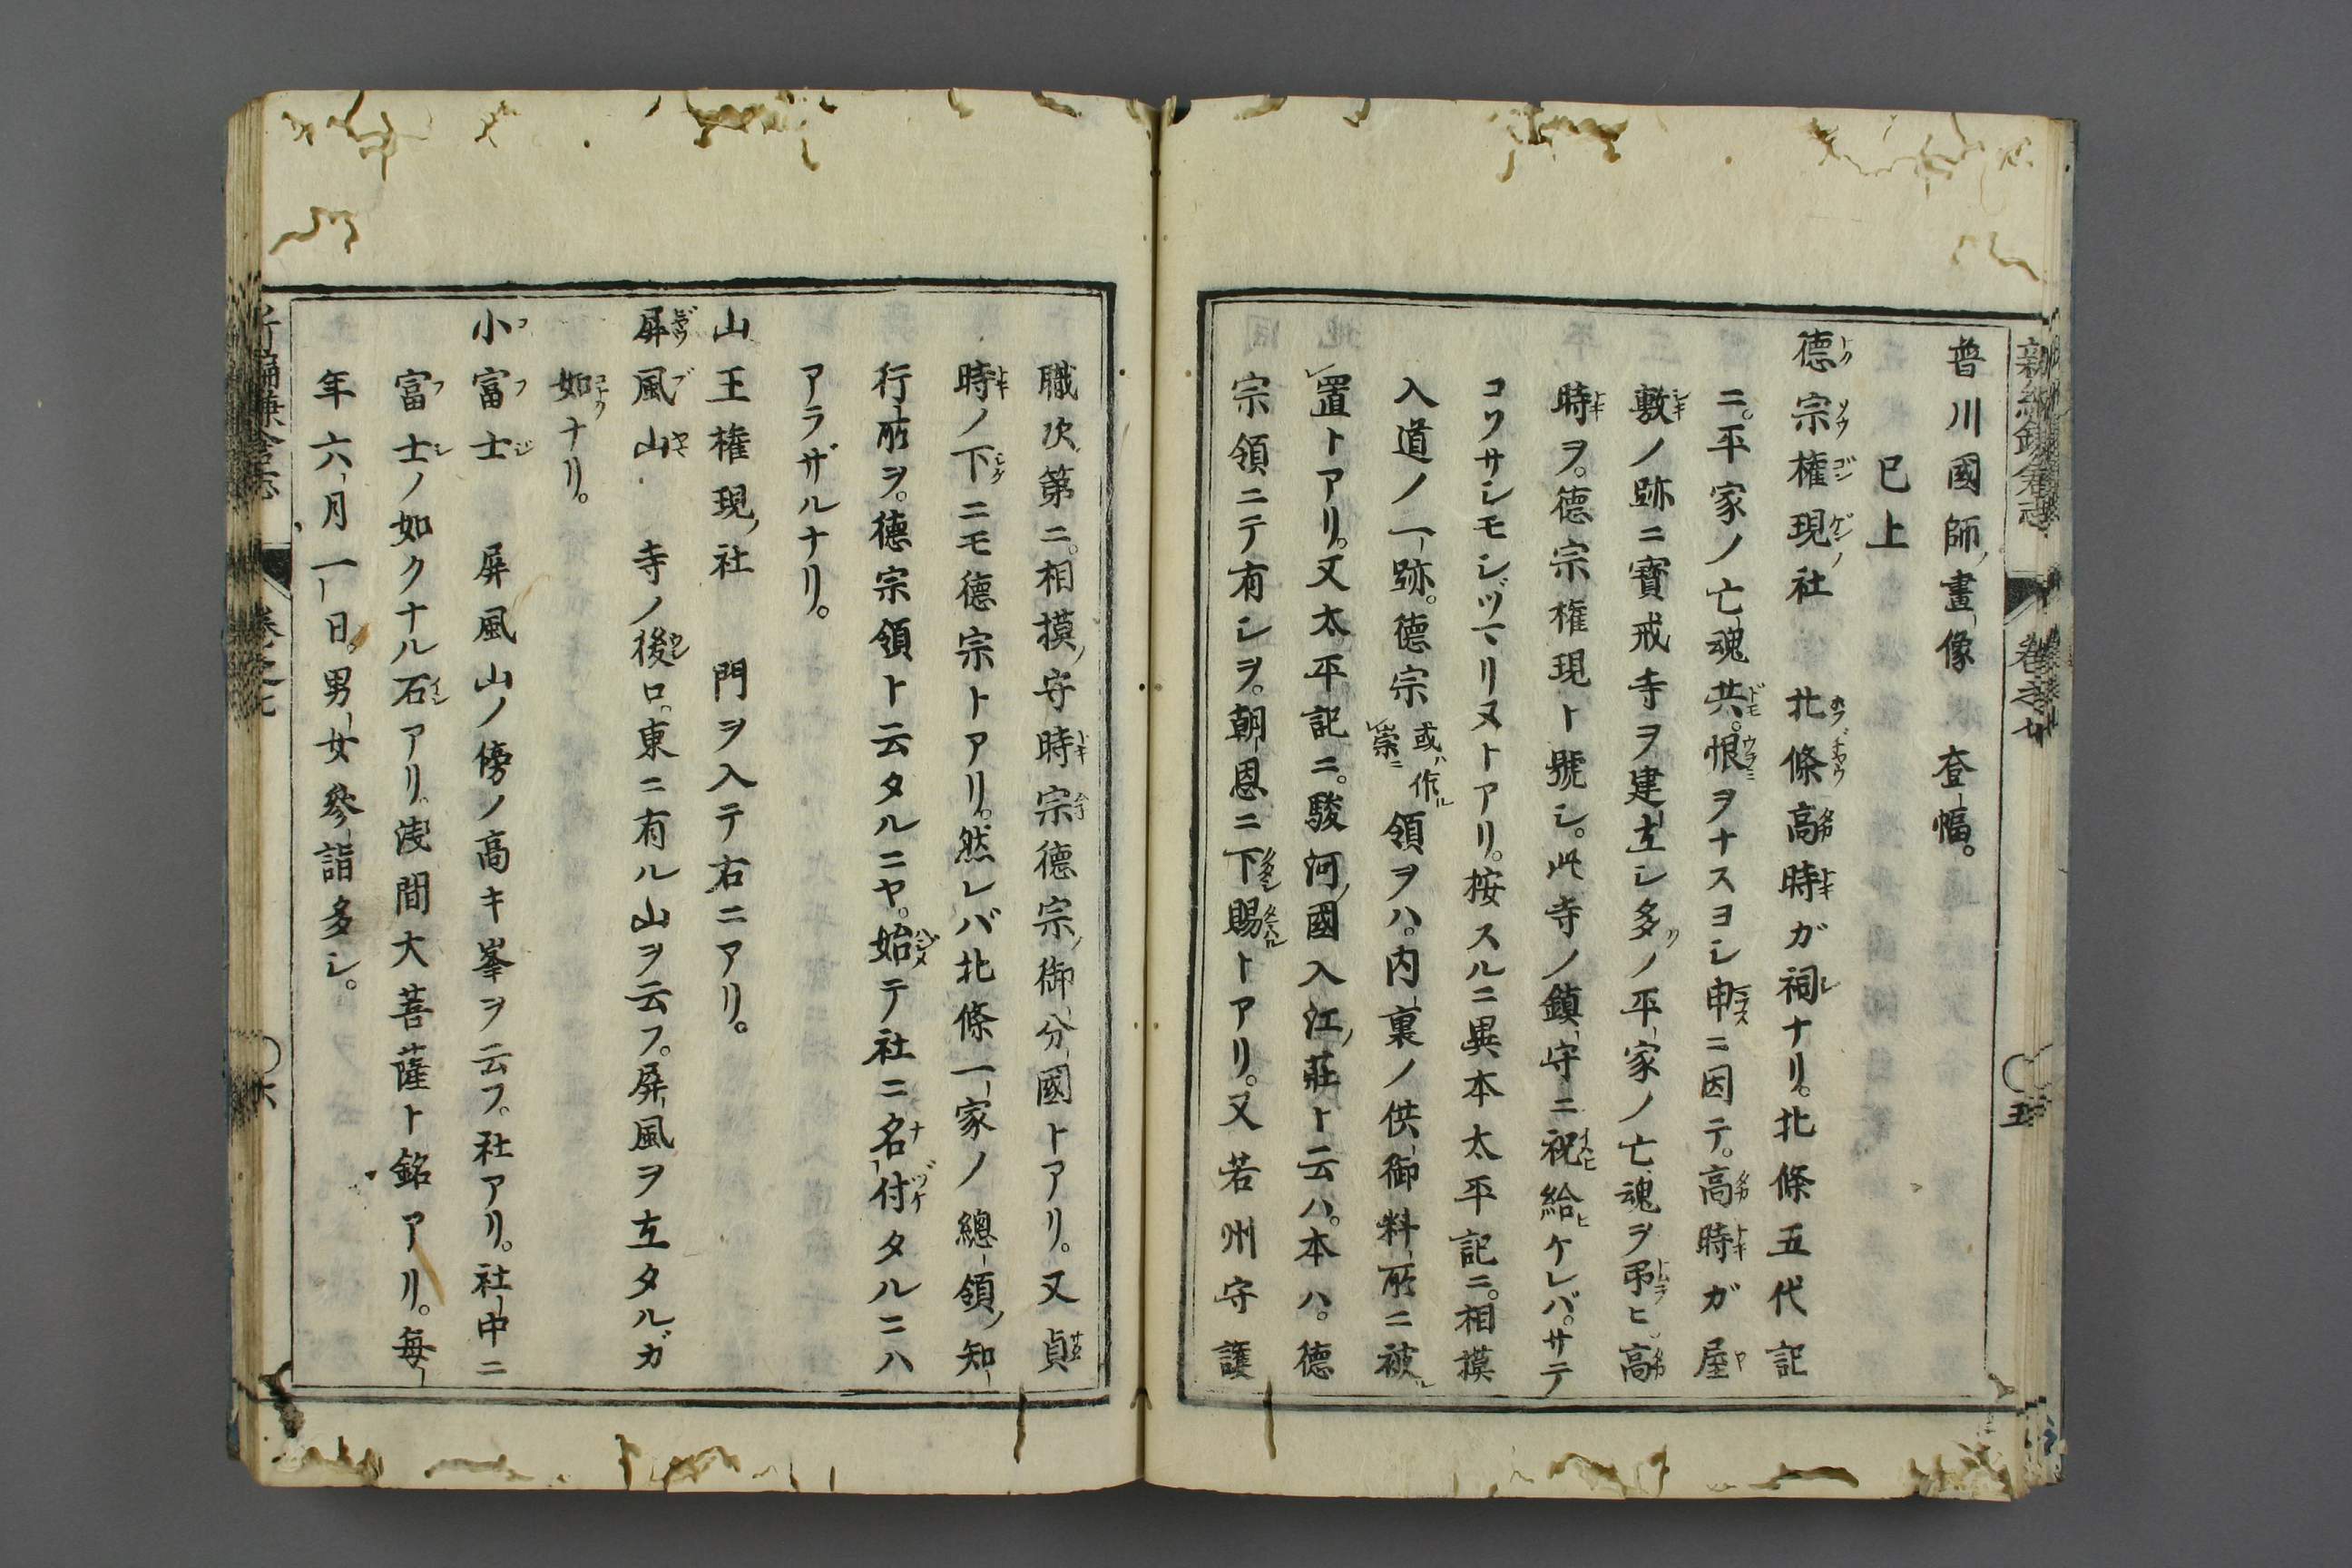 普川國師ノ畫像 壹幅。
已上
德宗權現ノ社 北條高時ガ祠ナリ。北條五代記
ニ。平家ノ亡魂共。恨ヲナスヨシ申ニ因テ。高時ガ屋
敷ノ跡ニ寶戒寺ヲ建立シ多ノ平家ノ亡魂ヲ弔ヒ。高
時ヲ。德宗權現ト號シ。此寺ノ鎮守ニ祝給ヒケレバ。サテ
コソサシモシヅマリヌトアリ。按スルニ異本太平記ニ。相摸
入道ノ一跡。德宗或ハ作ル崇ニ領ヲハ。内裏ノ供御料所ニ被
レ置トアリ。又太平記ニ。駿河ノ國入江ノ莊ト云ハ。本ハ。德
宗領ニテ有シヲ。朝恩ニ下賜トアリ。又若州守護
職次第ニ。相摸ノ守時宗德宗ノ御分國トアリ。又貞
時ノ下ニモ德宗トアリ。然レバ北條一家ノ總領ノ知
行所ヲ。德宗領ト云タルニヤ。始テ社ニ名付タルニハ
アラザルナリ。
山王權現ノ社 門ヲ入テ右ニアリ。
屏風山 寺ノ後ロ。東ニ有ル山ヲ云フ。屏風ヲ立タルガ
如ナリ。
小富士 屏風山ノ傍ノ高キ峯ヲ云フ。社アリ。社中ニ
富士ノ如クナル石アリ。淺間大菩薩ト銘アリ。毎
年六月一日。男女參詣多シ。
新編鎌倉志
卷之七